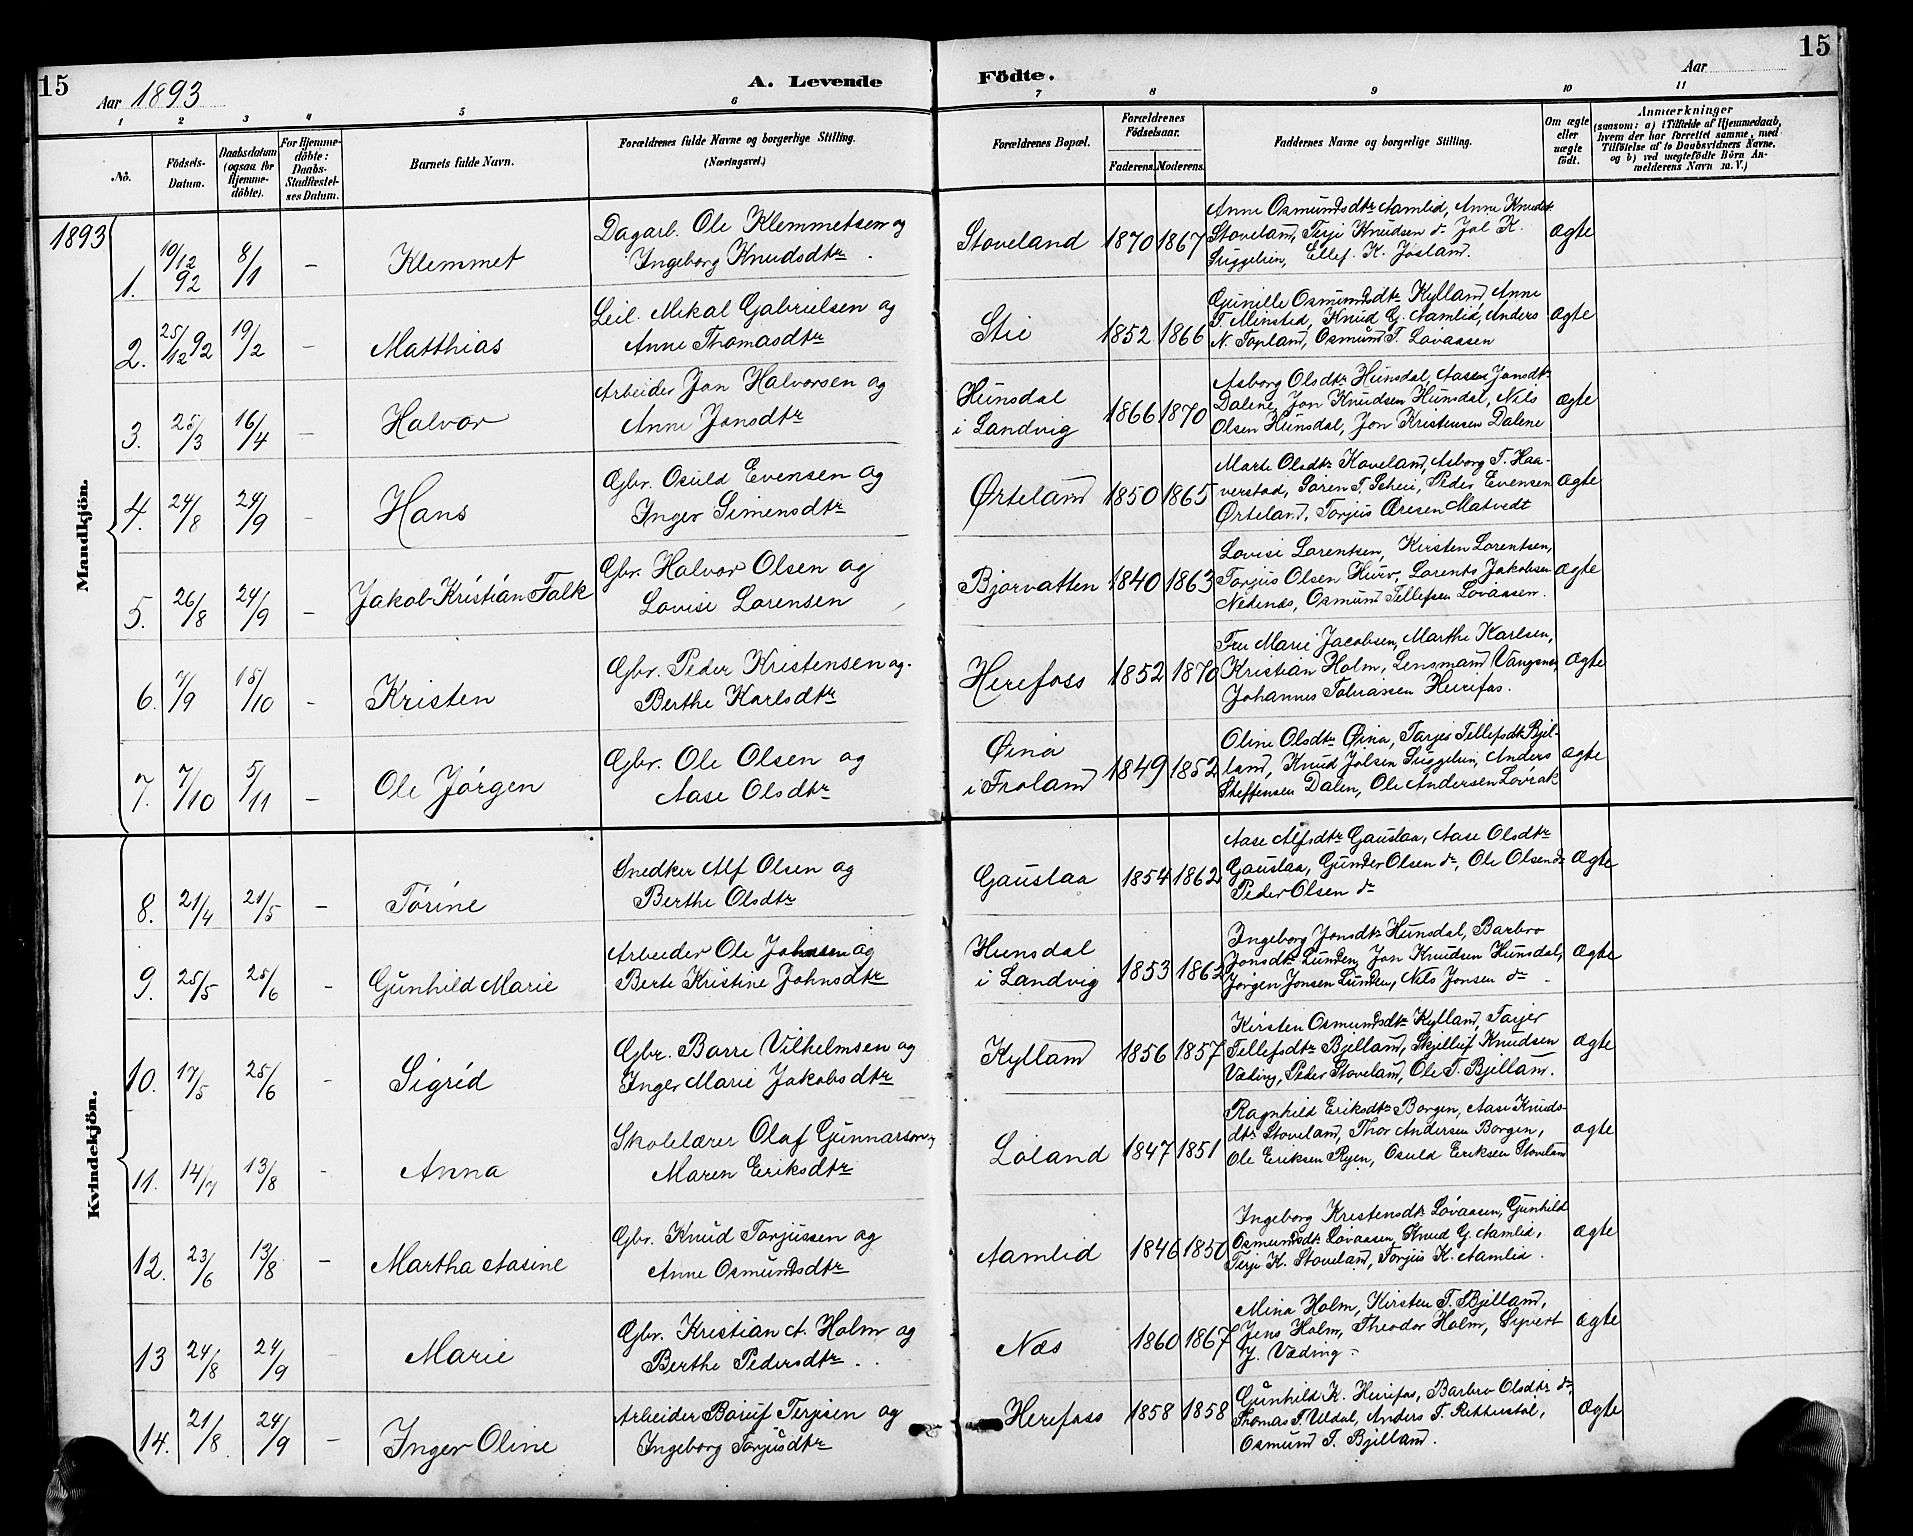 15
15
Aar 1893
A. Levende
Födte.
Aar
1
2
3
4
5
6
7
8
9
10
11
No.
Födsels-
Datum.
Daabsdatum
(ogsaa for
Hjemme-
döbte).
For Hjemme-
döbte:
Daabs-
Stadfæstel-
ses Datum.
Barnets fulde Navn.
Forældrenes fulde Navne og borgerlige Stilling.
(Næringsvei.)
Forældrenes Bopæl.
Forældrenes
Födselsaar.
Faderens.
Moderens.
Faddernes Navne og borgerlige Stilling.
Om ægte
eller
uægte
födt.
Anmærkninger
(saasom: a) i Tilfælde af Hjemmedaab,
hvem der har forrettet samme, med
Tilföielse af to Daabsvidners Navne,
og b) ved uægtefödte Börn An-
melderens Navn m. V.)
Mandkjön.
1893
1. 19/12 92 8/1 – Klemmet
Dagarb. Ole Klemmetsen og
Ingeborg Knudsdtr.
Stoveland 1870 1867
Anne Osmundsdtr Aamlid, Anne Knudsdt
Stoveland, Terje Knudsen do Jol K.
Suggelien, Ellef. K. Josland.
Ægte
2. 25/12 92 19/2 – Matthias
Leil. Mikal Gabrielsen og
Anne Thomasdtr
Stie 1852 1866
Gunille Osmundsdtr Kylland, Anne
T. Minsted, Knud G. Aamlid, Anders
N. Topland, Osmund T. Løvaasen
Ægte
3. 25/3 16/4 – Halvor
Arbeider Jon Halvorsen og
Anne Jonsdtr
Hunsdal
i Landvig 1866 1870
Asborg Olsdtr Hunsdal, Aasen Jonsdtr
Dalene, Jon Knudsen Hunsdal, Nils
Olsen Hunsdal, Jon Kristensen Dalene
Ægte
4. 24/8 24/9 – Hans
Gbr. Osuld Evensen og
Inger Simensdtr
Ørteland 1850 1865
Marte Olsdtr Haveland, Asborg T. Haa-
verstad, Søren T. Scheie, Peder Evensen
Ørteland, Torjus Øresen Matvedt
Ægte
5. 26/8 24/9 – Jakob Kristian Falk
Gbr. Halvor Olsen og
Lovise Lorensen
Bjorvatten 1840 1863
Lovise Lorentsen, Kirsten Lorentsen,
Torjus Olsen Hurv, Lorents Jakobsen
Nedenæs, Osmund Tellefsen Løvaasen.
Ægte
6. 7/9 15/10 – Kristen
Gbr. Peder Kristensen og
Berthe Karlsdtr
Herefoss 1852 1870
Fru Marie Jacobsen, Marthe Karlsen,
Kristian Holm, Lensmand Vangsnes,
Johannes Heirefos.
Ægte
7. 7/10 5/11 – Ole Jörgen
Gbr. Ole Olsen og
Aase Olsdtr
Øina
i Froland 1849 1852
Oline Olsdtr Øina, Tarjer Tellefsdtr Bjel-
land, Knud Jolsen Suggelien, Anders
Steffensen Dalen, Ole Andersen Lovrak
Ægte
Kvindekjön.
8. 21/4 21/5 – Torine
Snedker Alf Olsen og
Berthe Olsdtr
Gauslaa 1854 1862
Aase Alfsdtr Gauslaa, Aase Olsdtr
Gauslaa, Gunder Olsen do, Ole Olsen do
Peder Olsen do
Ægte
9. 25/5 25/6 – Gunhild Marie
Arbeider Ole Johnsen og
Berte Kristine Johnsdtr
Hunsdal
i Landvig 1853 1862
Ingeborg Jonsdtr Hunsdal, Barbro
Jonsdtr Lunden, Jon Knudsen Hunsdal,
Jörgen Jonsen Lunden, Nils Jonsen do
Ægte
10. 17/5 25/6 – Sigrid
Gbr. Barre Vilhelmsen og
Inger Marie Jakobsdtr
Kylland 1856 1857
Kirsten Osmundsdtr Kylland, Tarjer
Tellefsdtr Bjelland, Skjelluf Knudsen
Væding, Peder Stoveland, Ole T. Bjelland.
Ægte
11. 14/7 13/8 – Anna
Skolelærer Olaf Gunnarson,
Maren Eriksdtr
Løland 1847 1851
Ragnhild Eriksdtr Borgen, Aase Knuds-
dtr Stoveland, Thor Andersen Borgen,
Ole Eriksen Ryen, Osuld Eriksen Stoveland
Ægte
12. 23/6 13/8 – Martha Aasine
Gbr. Knud Torjussen og
Anne Osmundsdtr
Aamlid 1846 1850
Ingeborg Kristensdtr Løvaasen, Gunhild
Osmundsdtr Løvaasen, Knud G. Aamlid,
Terje K. Stoveland, Torjus K. Aamlid.
Ægte
13 24/8 24/9 – Marie
Gbr. Kristian A. Holm og
Berthe Pedersdtr.
Næs 1860 1867
Mina Holm, Kirsten T. Bjelland,
Jens Holm, Theodor Holm, Syvert
J. Væding
Ægte
14. 21/8 24/9 – Inger Oline
Arbeider Boruf Terjesen og
Ingeborg Torjusdtr
Herefoss 1858 1858
Gunhild K. Heirefos, Barbro Olsdtr do,
Thomas T. Uldal, Anders T. Retterstøl,
Osmund T. Bjelland.
Ægte